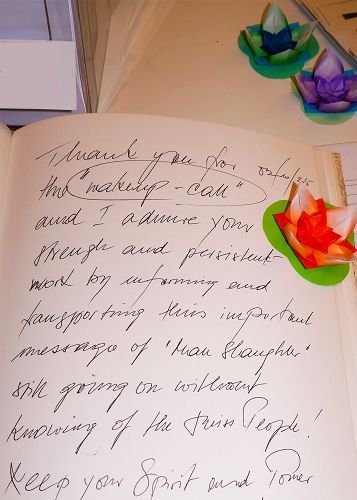 Thank you for 03/10/2015
the "wakeup-call"
and I admire your
strengh and persistent
work by informing and
transporting this important
message of 'Man Slaughter'
still going on without
knowing of the Swiss People!
Keep your Spirit and Power